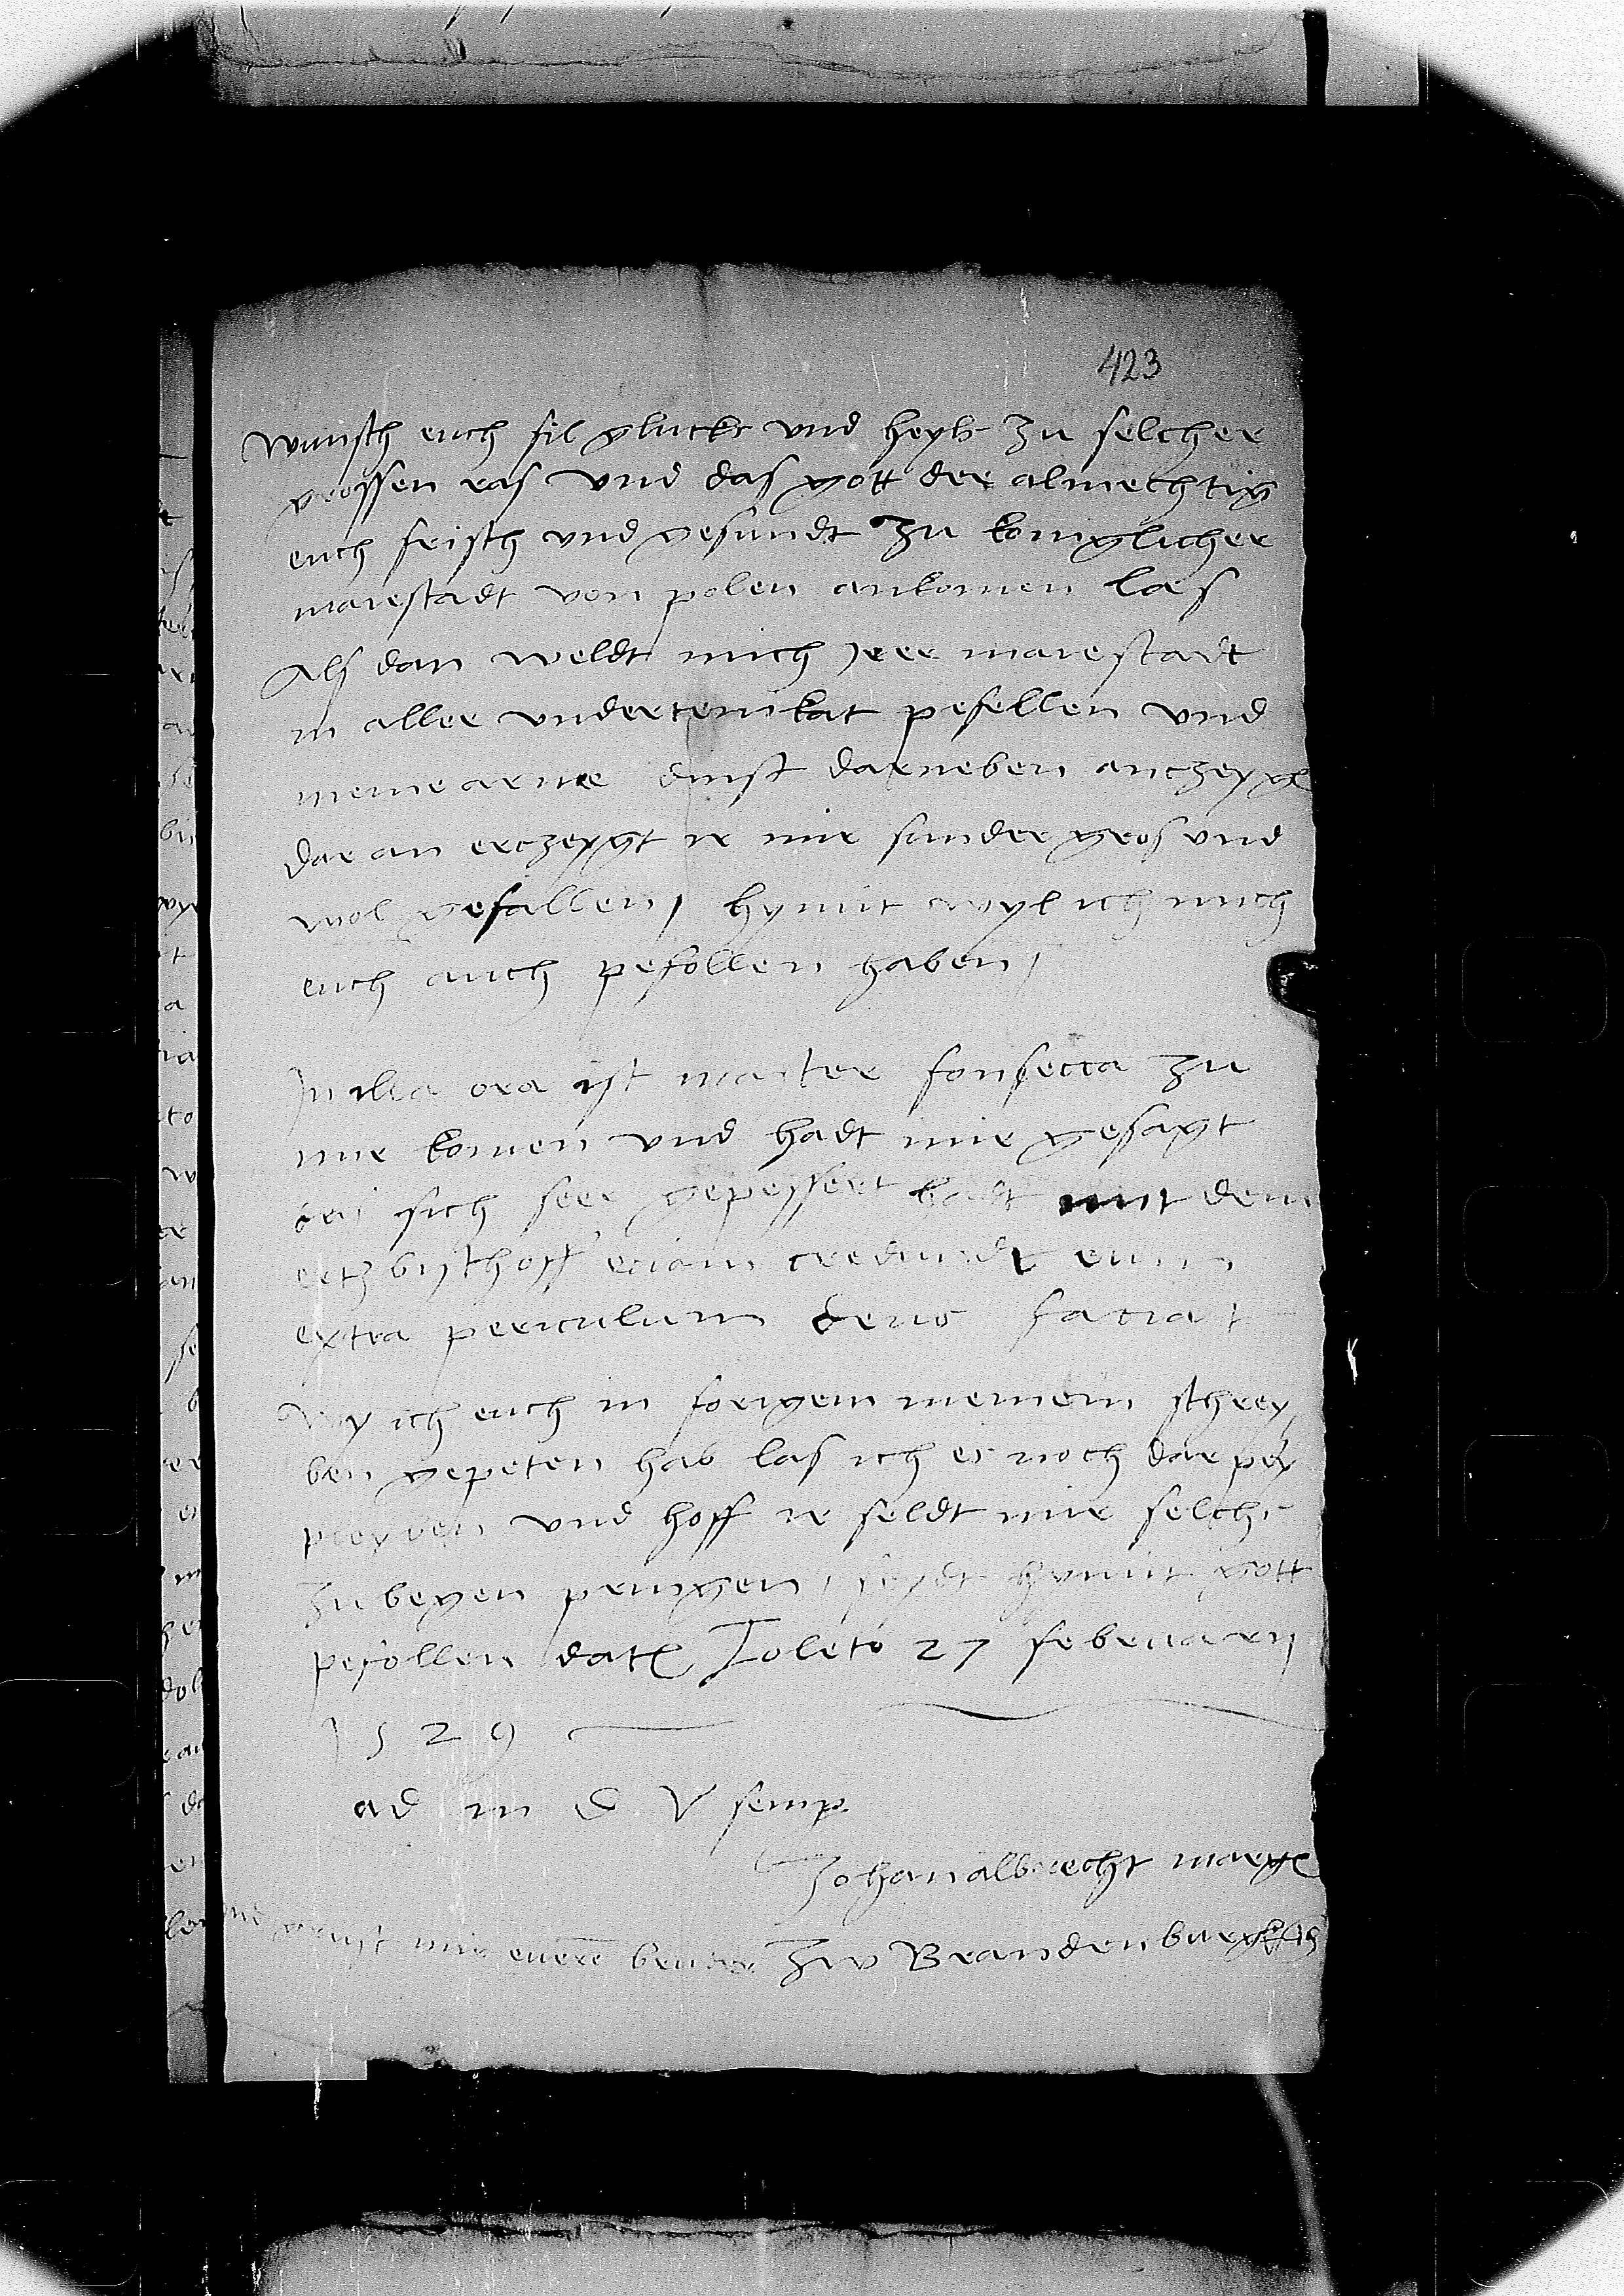 423
wunsch euch fil glucks und heyls zu selcher
grossen ras und das gott der almechtig
euch frisch und gesundt zu koniglicher
maiestadt von polen ankomen las
Als dan weldt mich irer maiestadt
in aller undertenikat pefellen und
meine arme dinst darneben anczeyg
dar an erczeygt ir mir sunder gros und
wol gefallen, hymit wyl ich mich
euch auch pefollen haben,
In illa ora ist mayster fonsecca zu
mir komen und hadt mir gesagt
sich seer gepessert hadt mit dem
ertzbischoff eciam credundt eum
extra periculum deus faciat
Wy ich euch in forigem meinem schrey
ben gepeten hab las ich es noch dar pey
pleyben und hoff ir seldt mir selchs
zu begen pringen, seydt hymit gott
pefollen dat Toleto 27 februarij
1529
ad in d V semp
Johan albrecht marg
zw Brandenburg
und grust mir euere bruder